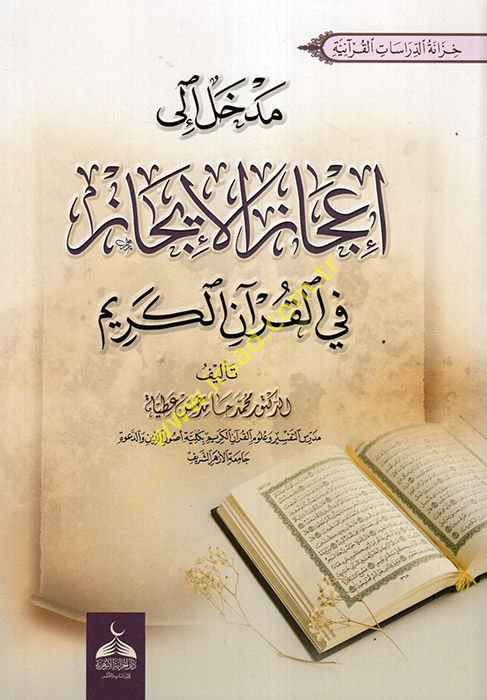 خِزَانَةُ الدِّرَاسَاتِ القُرْآنِيَّةِ
مَدْخَل إِلى
إِعْجَازِ الإِيجَازِ
فِي القُرْآنِ الكَرِيمِ
تَأليفُ
الدكتور محمد حامد محمد عطية
مدرس التفسير وعلوم القرآن الكريم بكلية أصول الدين والدعوة
جامعة الأزهر الشريف